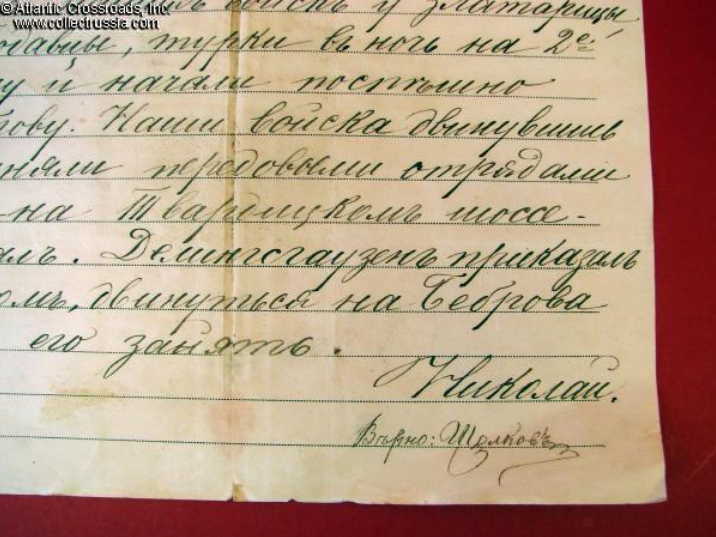 © Atlantic Crossroads, Inc.
www.collectrussia.com
войскъ у Златарицы
турки въ ночь на 2е
и начали поспѣшно
Наши войска двинувшись
передовыми отрядами
на Твардицкомъ шоссе-
Делингсгаузенъ приказалъ
двинуться на Беброва
его занять.
Николай.
Вѣрно: Щолковъ